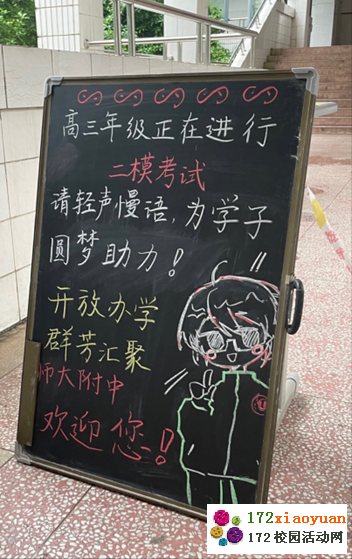 高三年级正在进行
二模考试
请轻声慢语，为学子
圆梦助力！
开放办学
群芳汇聚
师大附中
欢迎您！
172xiaoyuan
172校园活动网